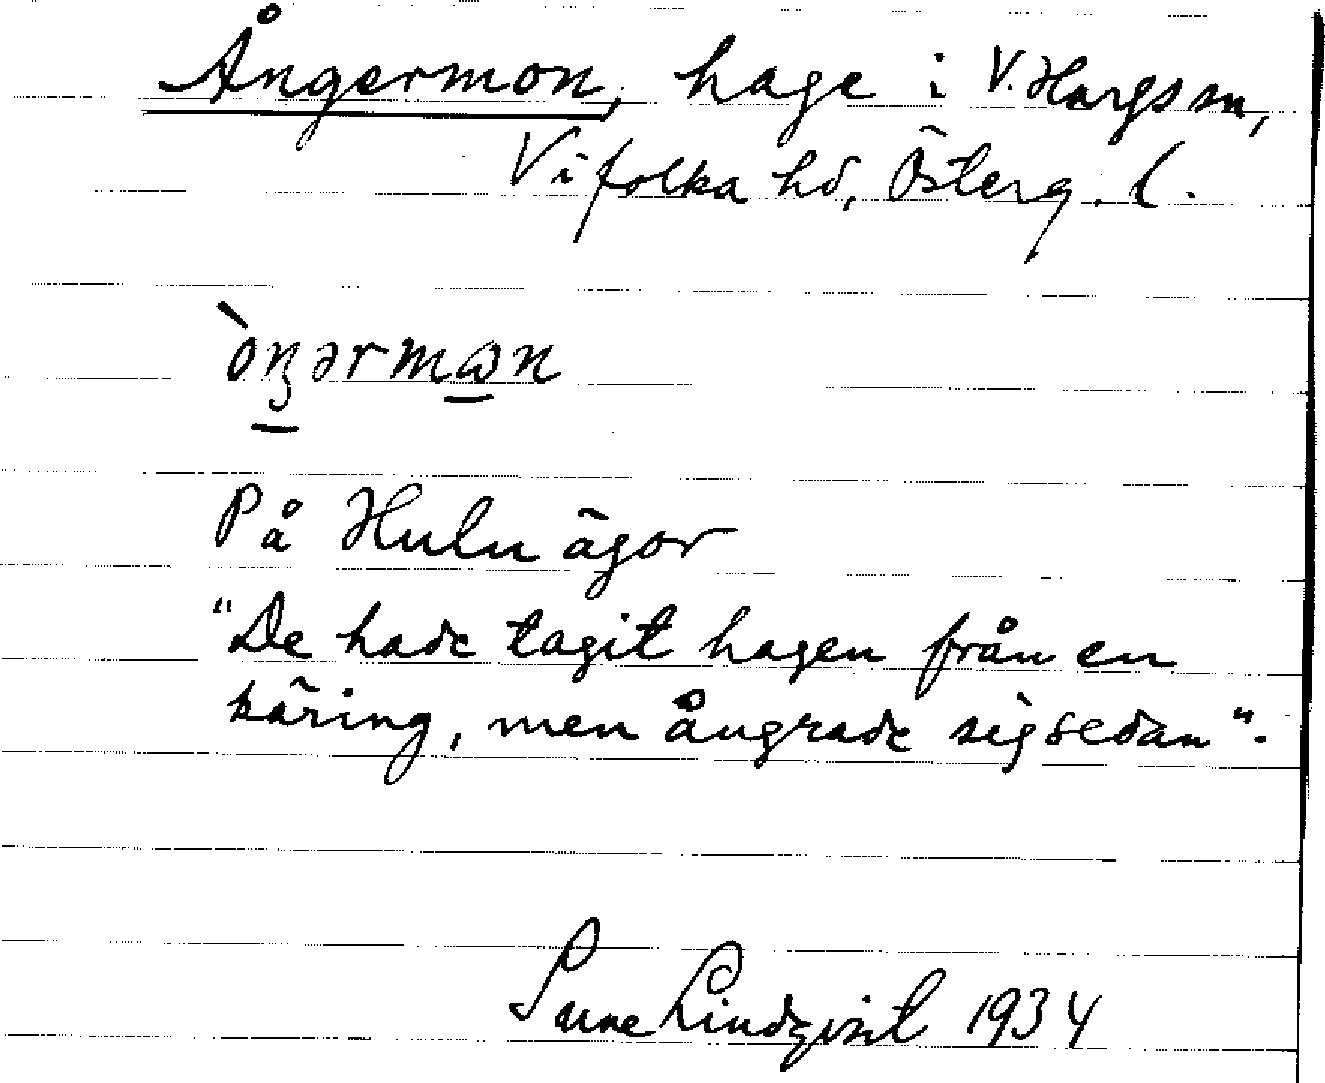 Ångermon, hage i V. Hargs sn,
Vifolka hd, Österg. l.
òŋərmꞷn
På Hulu ägor
"De hade tagit hagen från en
käring, men ångrade sig sedan".
Sune Lindqvist 1934